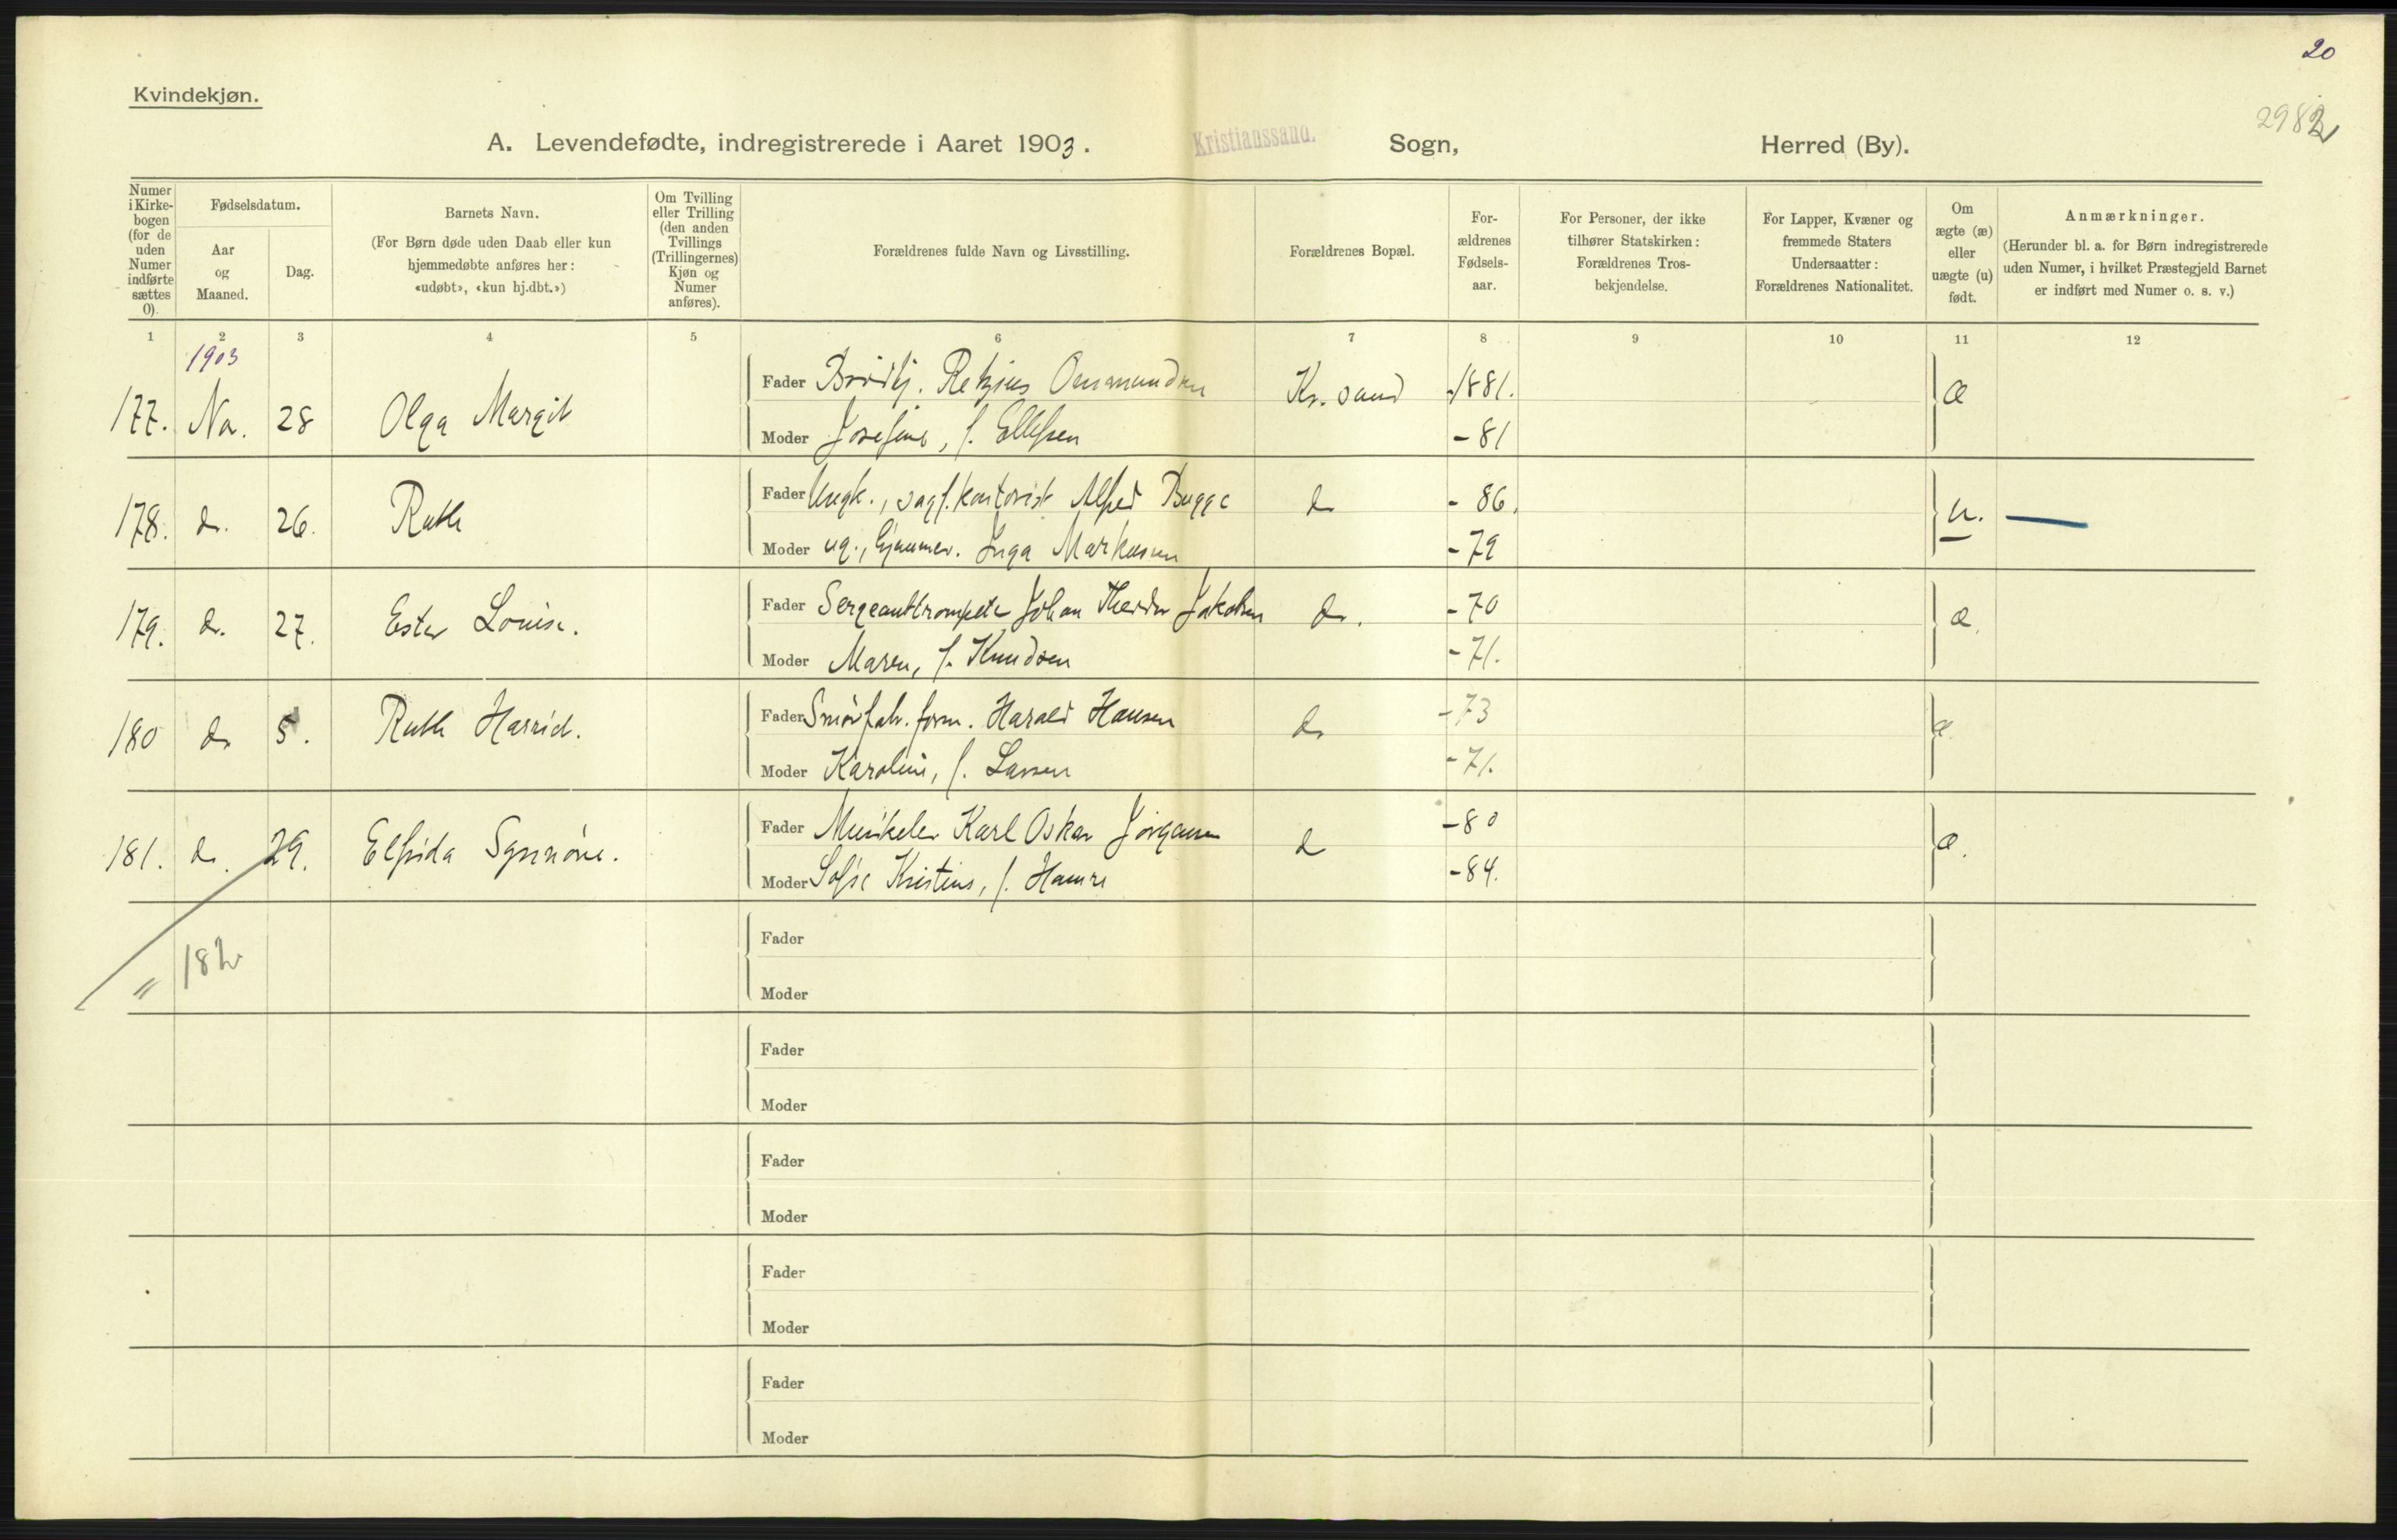 20
Kvindekjøn.
2982
A. Levendefødte, indregistrerede i Aaret 1903. Kristianssand. Sogn, Herred (By).
Numer i Kirke-bogen (for de uden Numer indførte sættes 0).
Fødselsdatum.
Aar og Maaned.
Dag.
Barnets Navn.
(For Børn døde uden Daab eller kun hjemmedøbte anføres her: «udøbt», «kun hj.dbt.»)
Om Tvilling eller Trilling (den anden Tvillings (Trillingernes) Kjøn og Numer anføres).
Forældrenes fulde Navn og Livsstilling.
Forældrenes Bopæl.
For-ældrenes Fødsels-aar.
For Personer, der ikke tilhører Statskirken: Forældrenes Tros-bekjendelse.
For Lapper, Kvæner og fremmede Staters Undersaatter: Forældrenes Nationalitet.
Om ægte (æ) eller uægte (u) født.
Anmærkninger.
(Herunder bl. a. for Børn indregistrerede uden Numer, i hvilket Præstegjeld Barnet er indført med Numer o. s. v.)
1 2 3 4 5 6 7 8 9 10 11 12
1903
Fader Ommundsen Kr.sand 1881.
177. No. 28 Olga Margit æ
Moder Josefine, f. Ellefsen - 81
Fader Ungk., sagf.kontorist Alfred Bugge d - 86.
178. d. 26. Ruth u.
Moder ug., Inga Markusen - 79
Fader Sergeanttrompeter Johan Theodor Jakobsen d. - 70
179. d. 27. Ester Louise. æ.
Moder Maren, f. Knudsen - 71.
Fader Smørfabr.form. Harald Hansen d - 73
180 d 5. Ruth Harrid. æ.
Moder Karoline, f. Larsen - 71.
Fader Murikeler Karl Oskar Jørgensen d - 80
181. d. 29. Elfrida Synnøve. æ.
Moder Sofie Kristine, f. Hamre - 84.
Fader
" 182
Moder
Fader
Moder
Fader
Moder
Fader
Moder
Fader
Moder